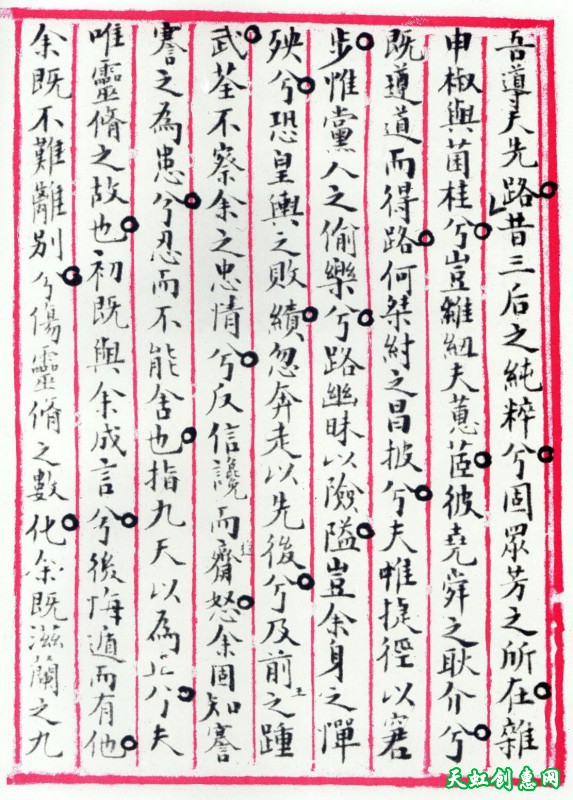 吾導夫先路昔三后之純粹兮固眾芳之所在雜
申椒與菌桂兮豈維紐夫蕙茝彼堯舜之耿介兮
既遵道而得路何桀紂之昌披兮夫唯捷徑以窘
步惟黨人之偷樂兮路幽昧以險隘豈余身之憚
殃兮恐皇輿之敗績忽奔走以先後兮及前王之踵
武荃不察余之忠情兮反信讒而齌怒余固知謇
謇之為患兮忍而不能舍也指九天以為正兮夫
唯靈脩之故也初既與余成言兮後悔遁而有他
余既不難離別兮傷靈脩之數化余既滋蘭之九
天虹创惠网